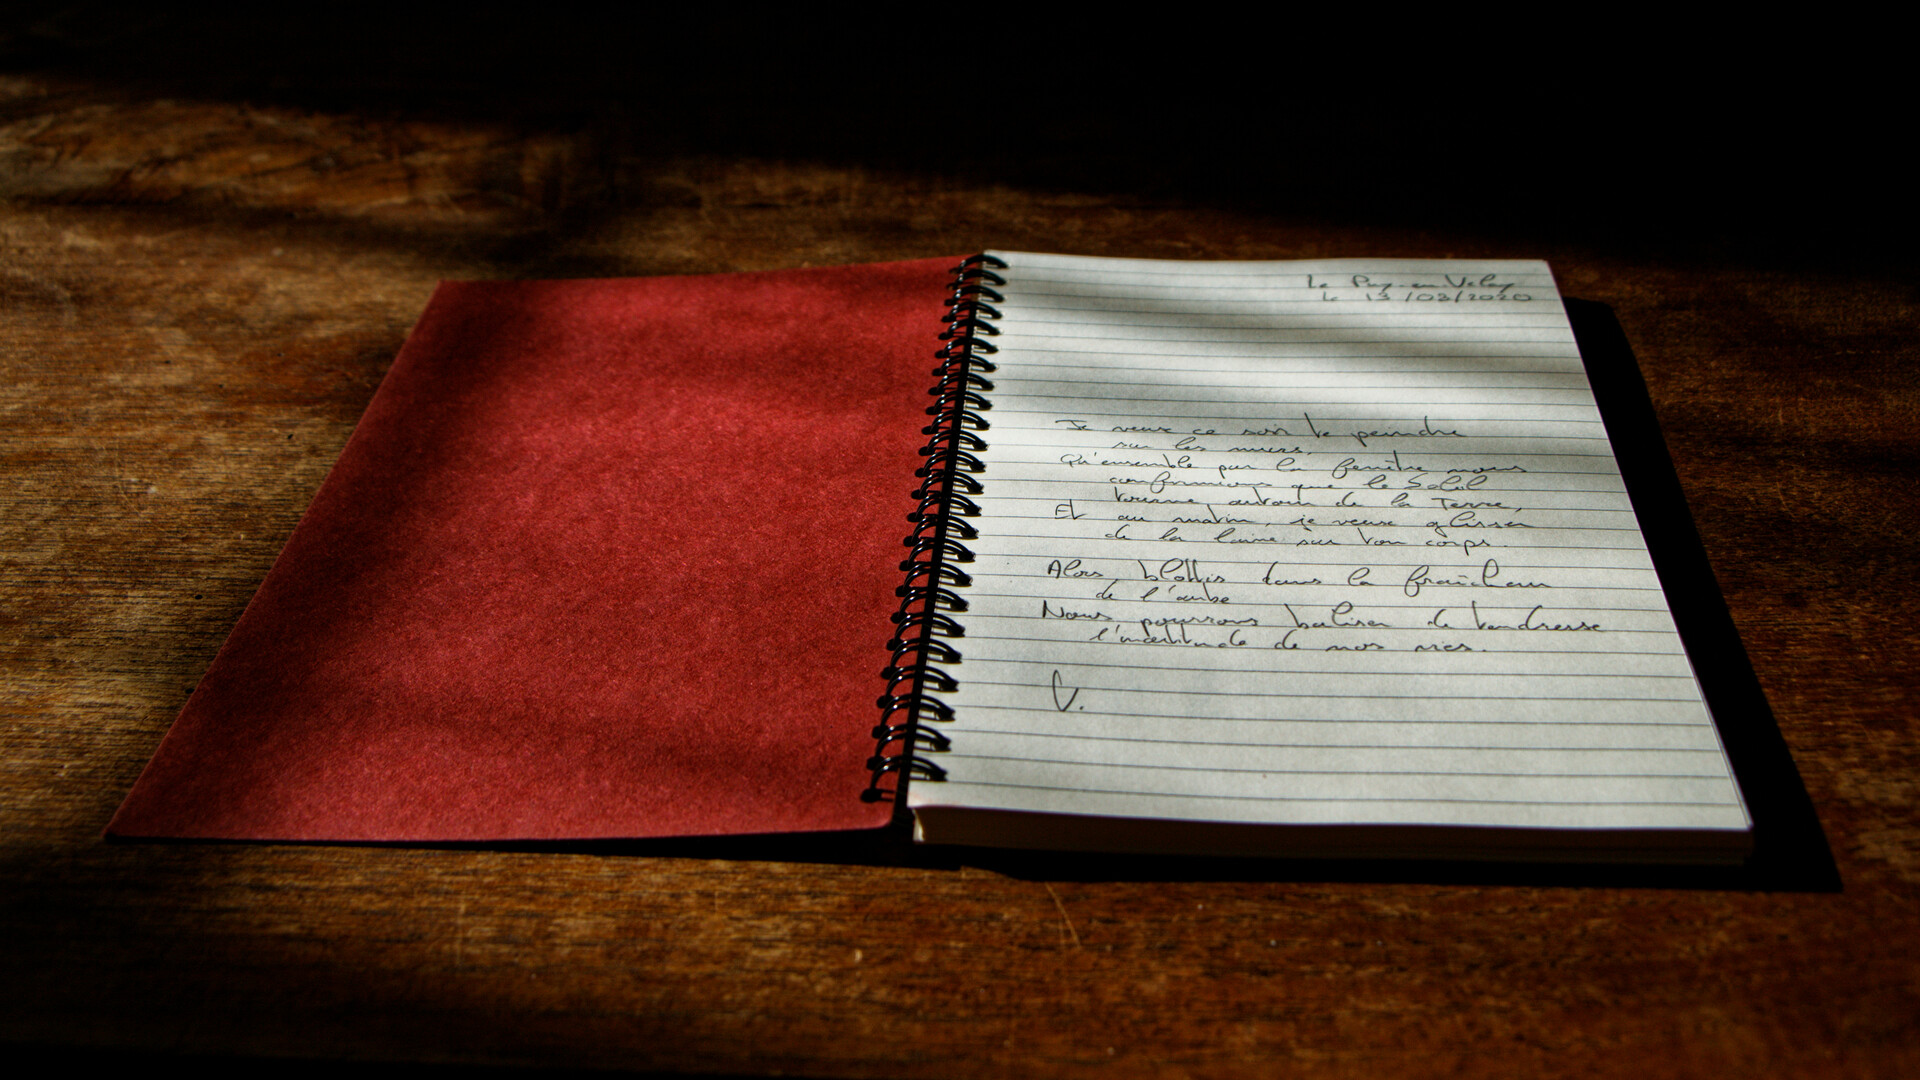 Le Puy-en-Velay
le 13/03/2020
Je veux ce soir te peindre
sur les murs,
Qu'ensemble par la fenêtre nous
confirmions que le Soleil
tourne autour de la Terre,
Et au matin, je veux glisser
de la laine sur ton corps.
Alors, blottis dans la fraîcheur
de l'aube
Nous pourrons baliser de tendresse
l'incertitude de nos vies.
V.